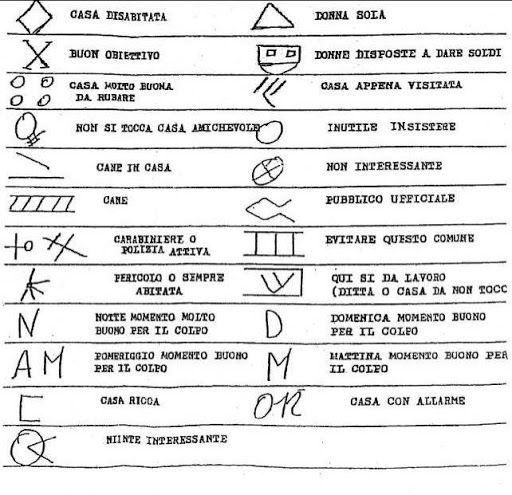 CASA DISABITATA
DONNA SOLA
BUON OBIETTIVO
DONNE DISPOSTE A DARE SOLDI
CASA MOLTO BUONA
DA RUBARE
CASA APPENA VISITATA
NON SI TOCCA CASA AMICHEVOLE
INUTILE INSISTERE
CANE IN CASA
NON INTERESSANTE
CANE
PUBBLICO UFFICIALE
CARABINIERE O
POLIZIA ATTIVA
EVITARE QUESTO COMUNE
PERICOLO O SEMPRE
ABITATA
QUI SI DA LAVORO
(DITTA O CASA DA NON TOCC
N
NOTTE MOMENTO MOLTO
BUONO PER IL COLPO
D
DOMENICA MOMENTO BUONO
PER IL COLPO
AM
POMERIGGIO MOMENTO BUONO
PER IL COLPO
M
MATTINA MOMENTO BUONO PER
IL COLPO
CASA RICCA
OR
CASA CON ALLARME
NIINTE INTERESSANTE